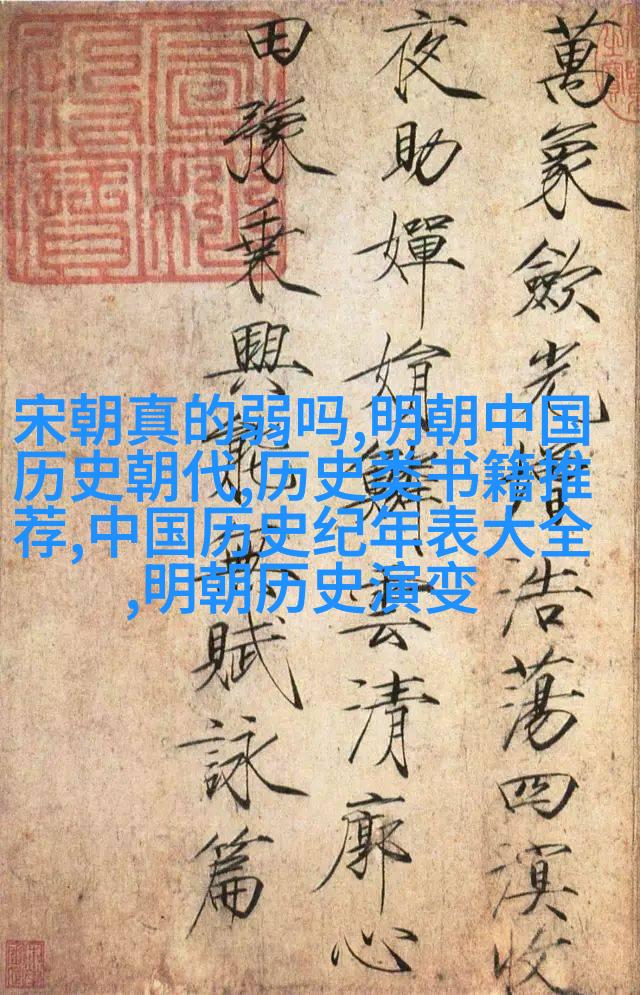 萬象歛光增浩蕩四溟收
夜助嬋娟鱗雲清廓心
田豫乘興能無賦詠篇
宋朝真的弱吗,明朝中国
历史朝代,历史类书籍推
荐,中国历史纪年表大全
,明朝历史演变